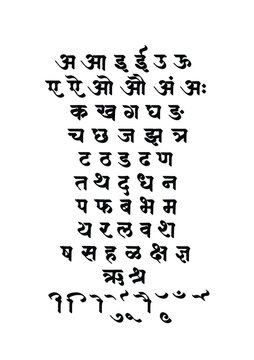 अ आ इ ई उ ऊ
ए ऐ ओ औ अं अः
क ख ग घ ङ
च छ ज झ त्र
ट ठ ड ढ ण
त थ द ध न
प फ ब भ म
य र ल व श
ष स ह ळ क्ष ज्ञ
ऋ श्र